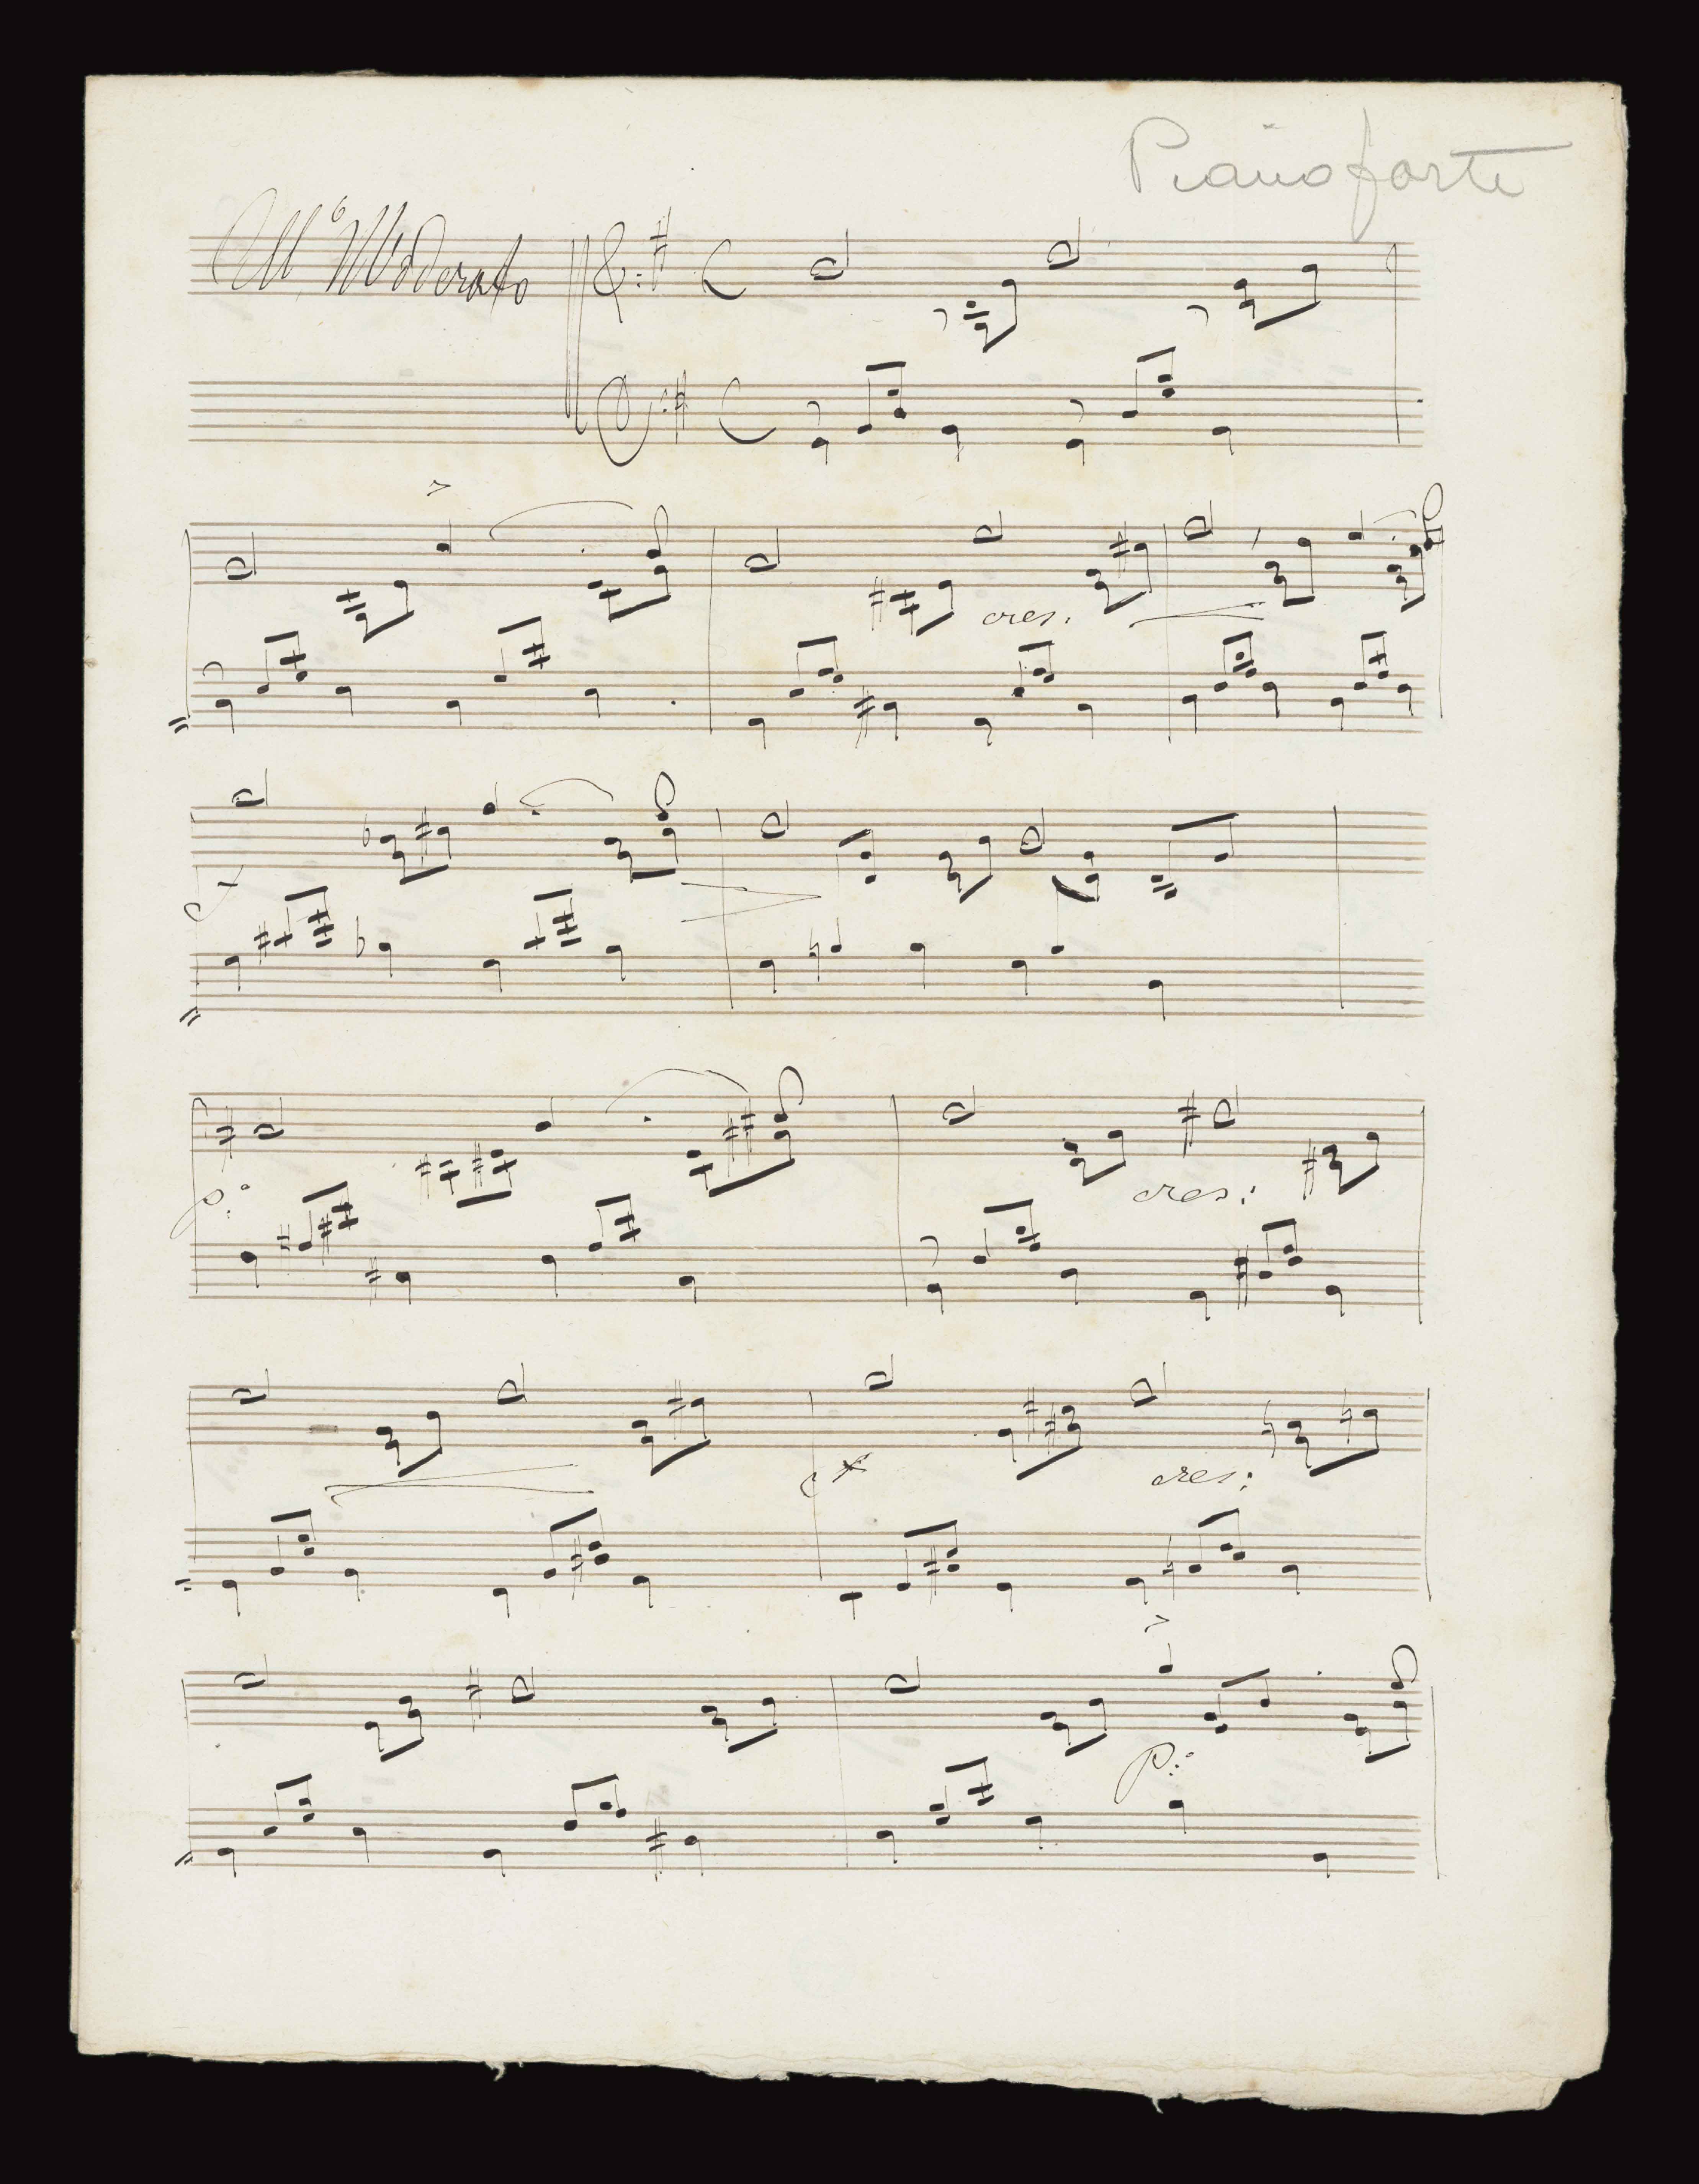 Pianoforte
All.º Moderato
cres.
f
p:
cres:
f
cres:
p: